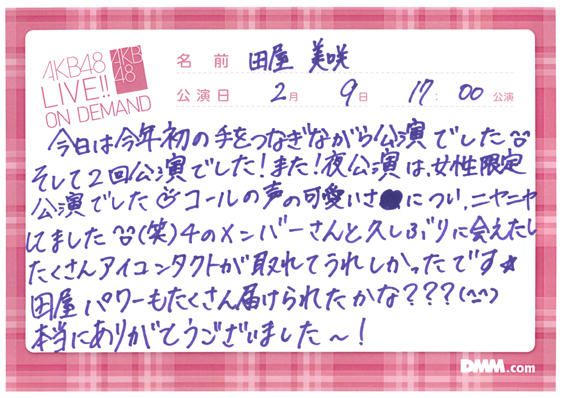 AKB48
LIVE!!
ON DEMAND
AKB
48
名前 田屋 美咲
公演日 2月 9日 17:00公演
今日は今年初の手をつなぎながら公演でした
そして2回公演でした!また!夜公演は、女性限定
公演でした コールの声の可愛いさ につい、ニヤニヤ
してました(笑)4のメンバーさんと久しぶりに会えたし
たくさんアイコンタクトが取れてうれしかったです☆
田屋パワーもたくさん届けられたかな???(^^)
本当にありがとうございました〜!
DMM.com